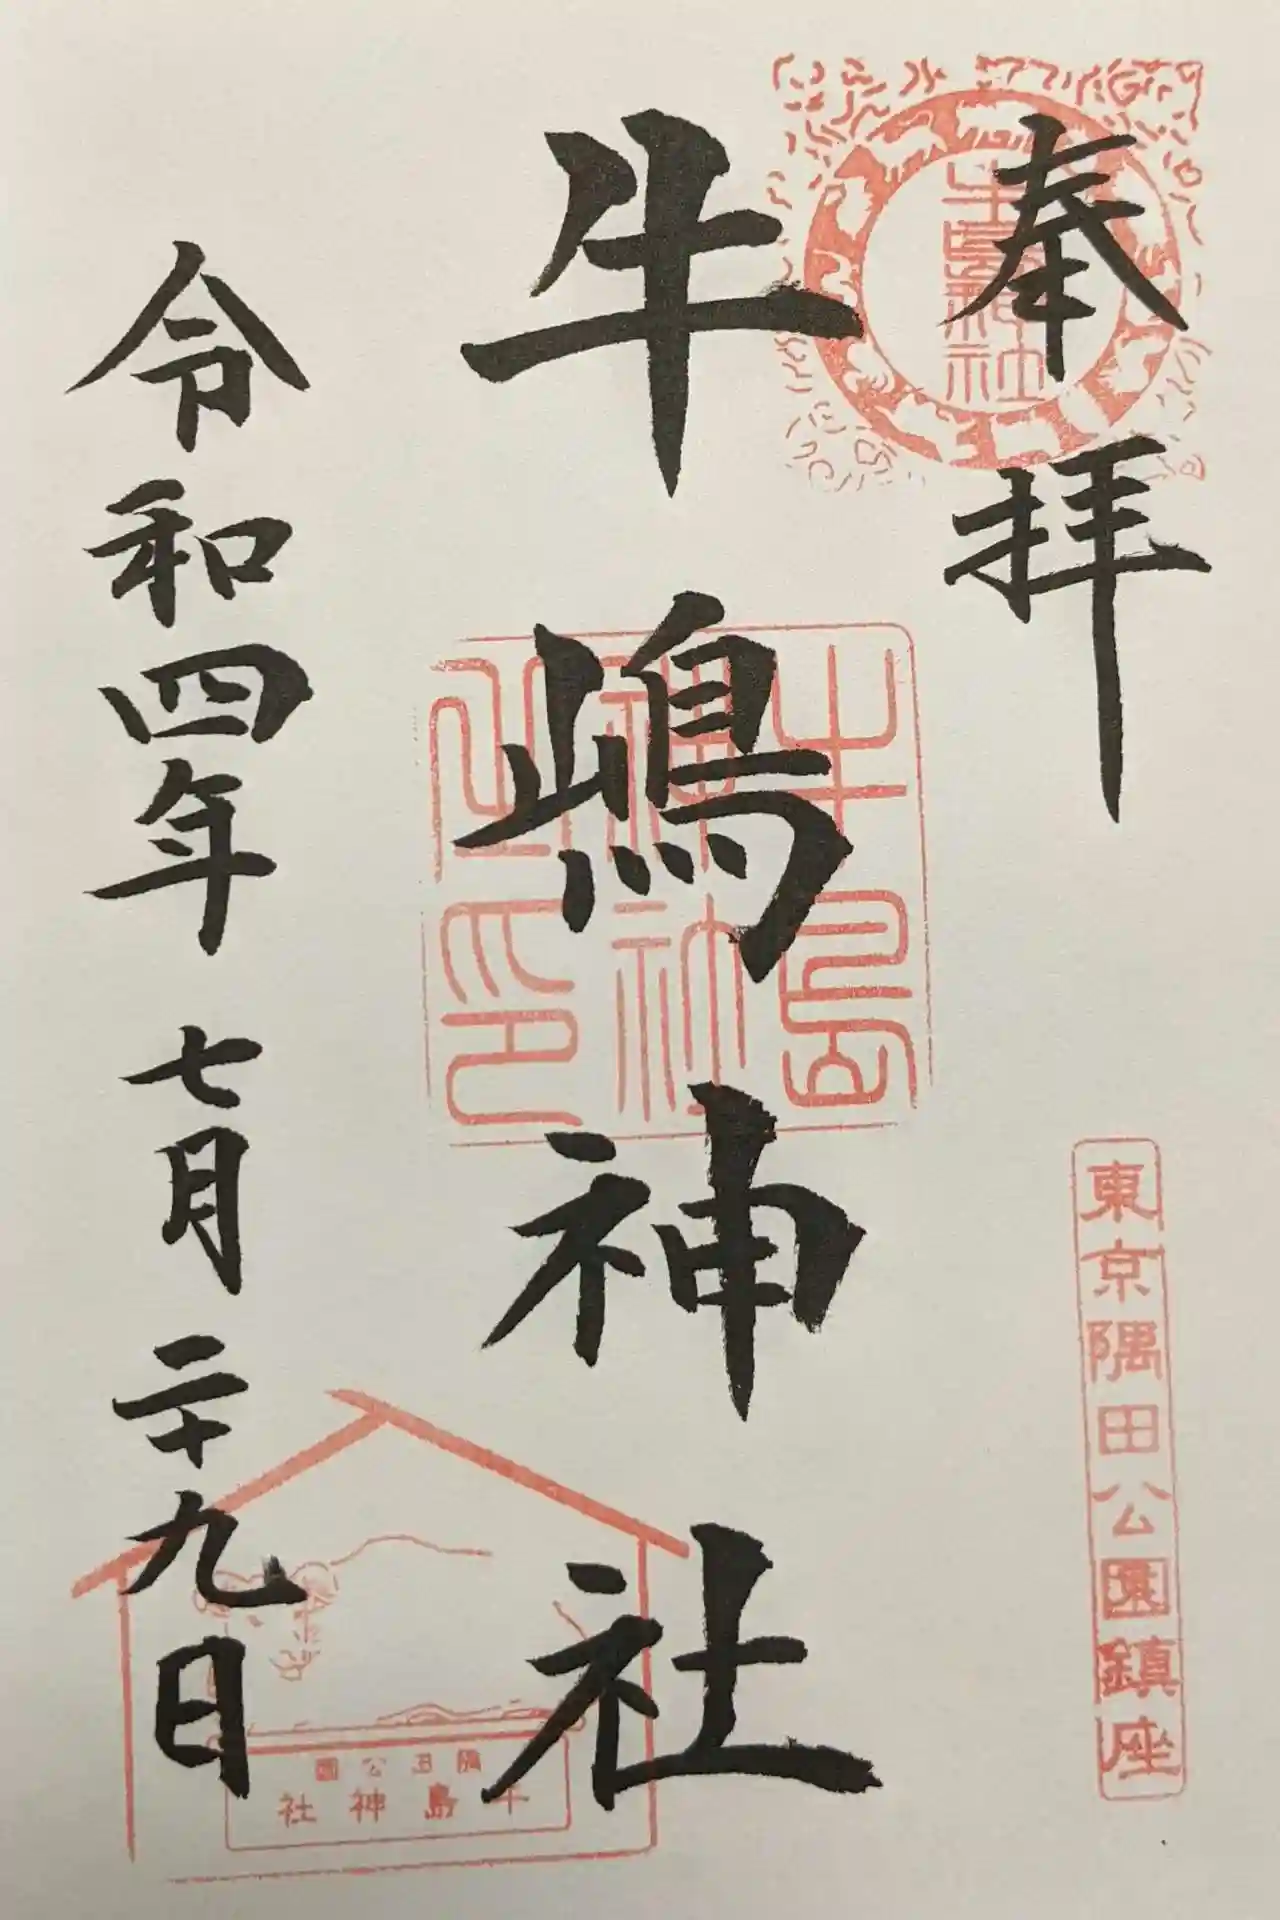 奉拝
牛嶋神社
令和四年七月二十九日
牛島神社
牛島神社之印
東京隅田公園鎮座
隅田公園
牛島神社